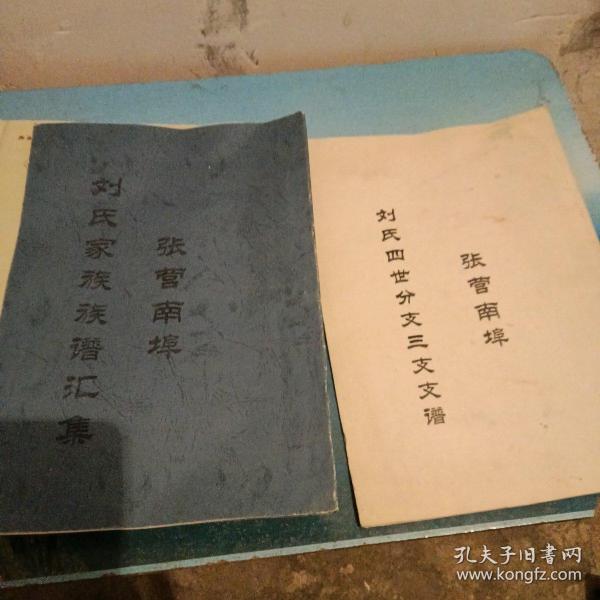 张营南埠
刘氏家族族谱汇集
张营南埠
刘氏四世分支三支支谱
孔夫子旧書网
www.kongfz.com